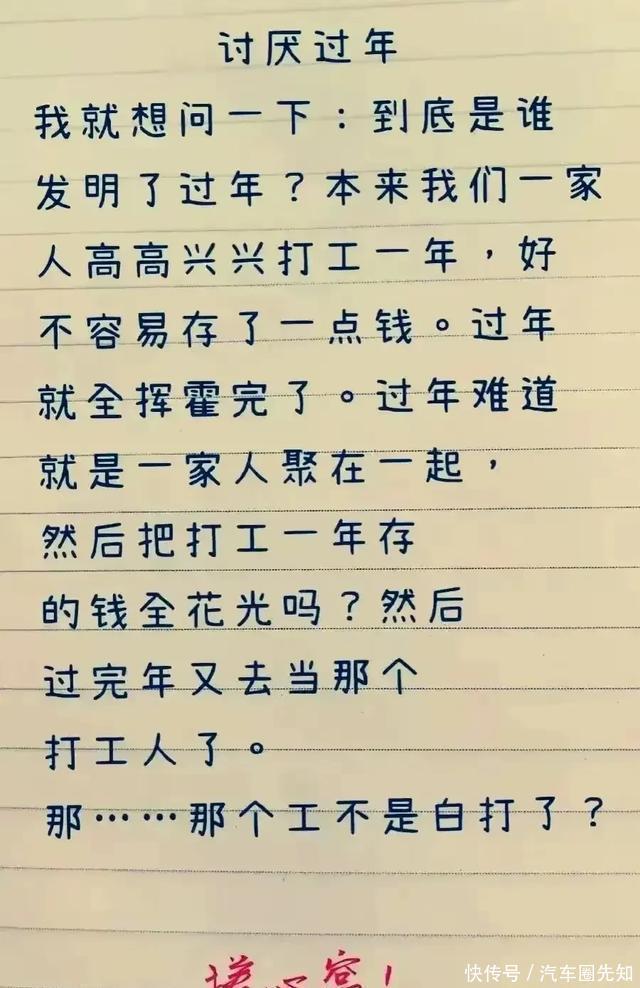 讨厌过年
我就想问一下：到底是谁
发明了过年？本来我们一家
人高高兴兴打工一年，好
不容易存了一点钱。过年
就全挥霍完了。过年难道
就是一家人聚在一起，
然后把打工一年存
的钱全花光吗？然后
过完年又去当那个
打工人了。
那……那个工不是白打了？
快传号／汽车圈先知